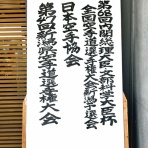 内閣総理大臣杯・文部科学大臣杯
全国空手道選手権大会新潟予選会
日本空手協会
新潟県空手道選手権大会